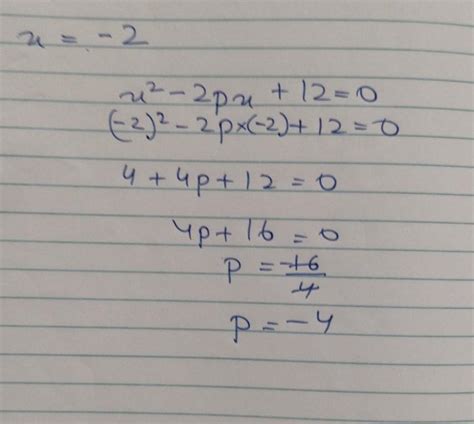 x = -2
x² - 2px + 12 = 0
(-2)² - 2p×(-2) + 12 = 0
4 + 4p + 12 = 0
4p + 16 = 0
p = -16/4
p = -4